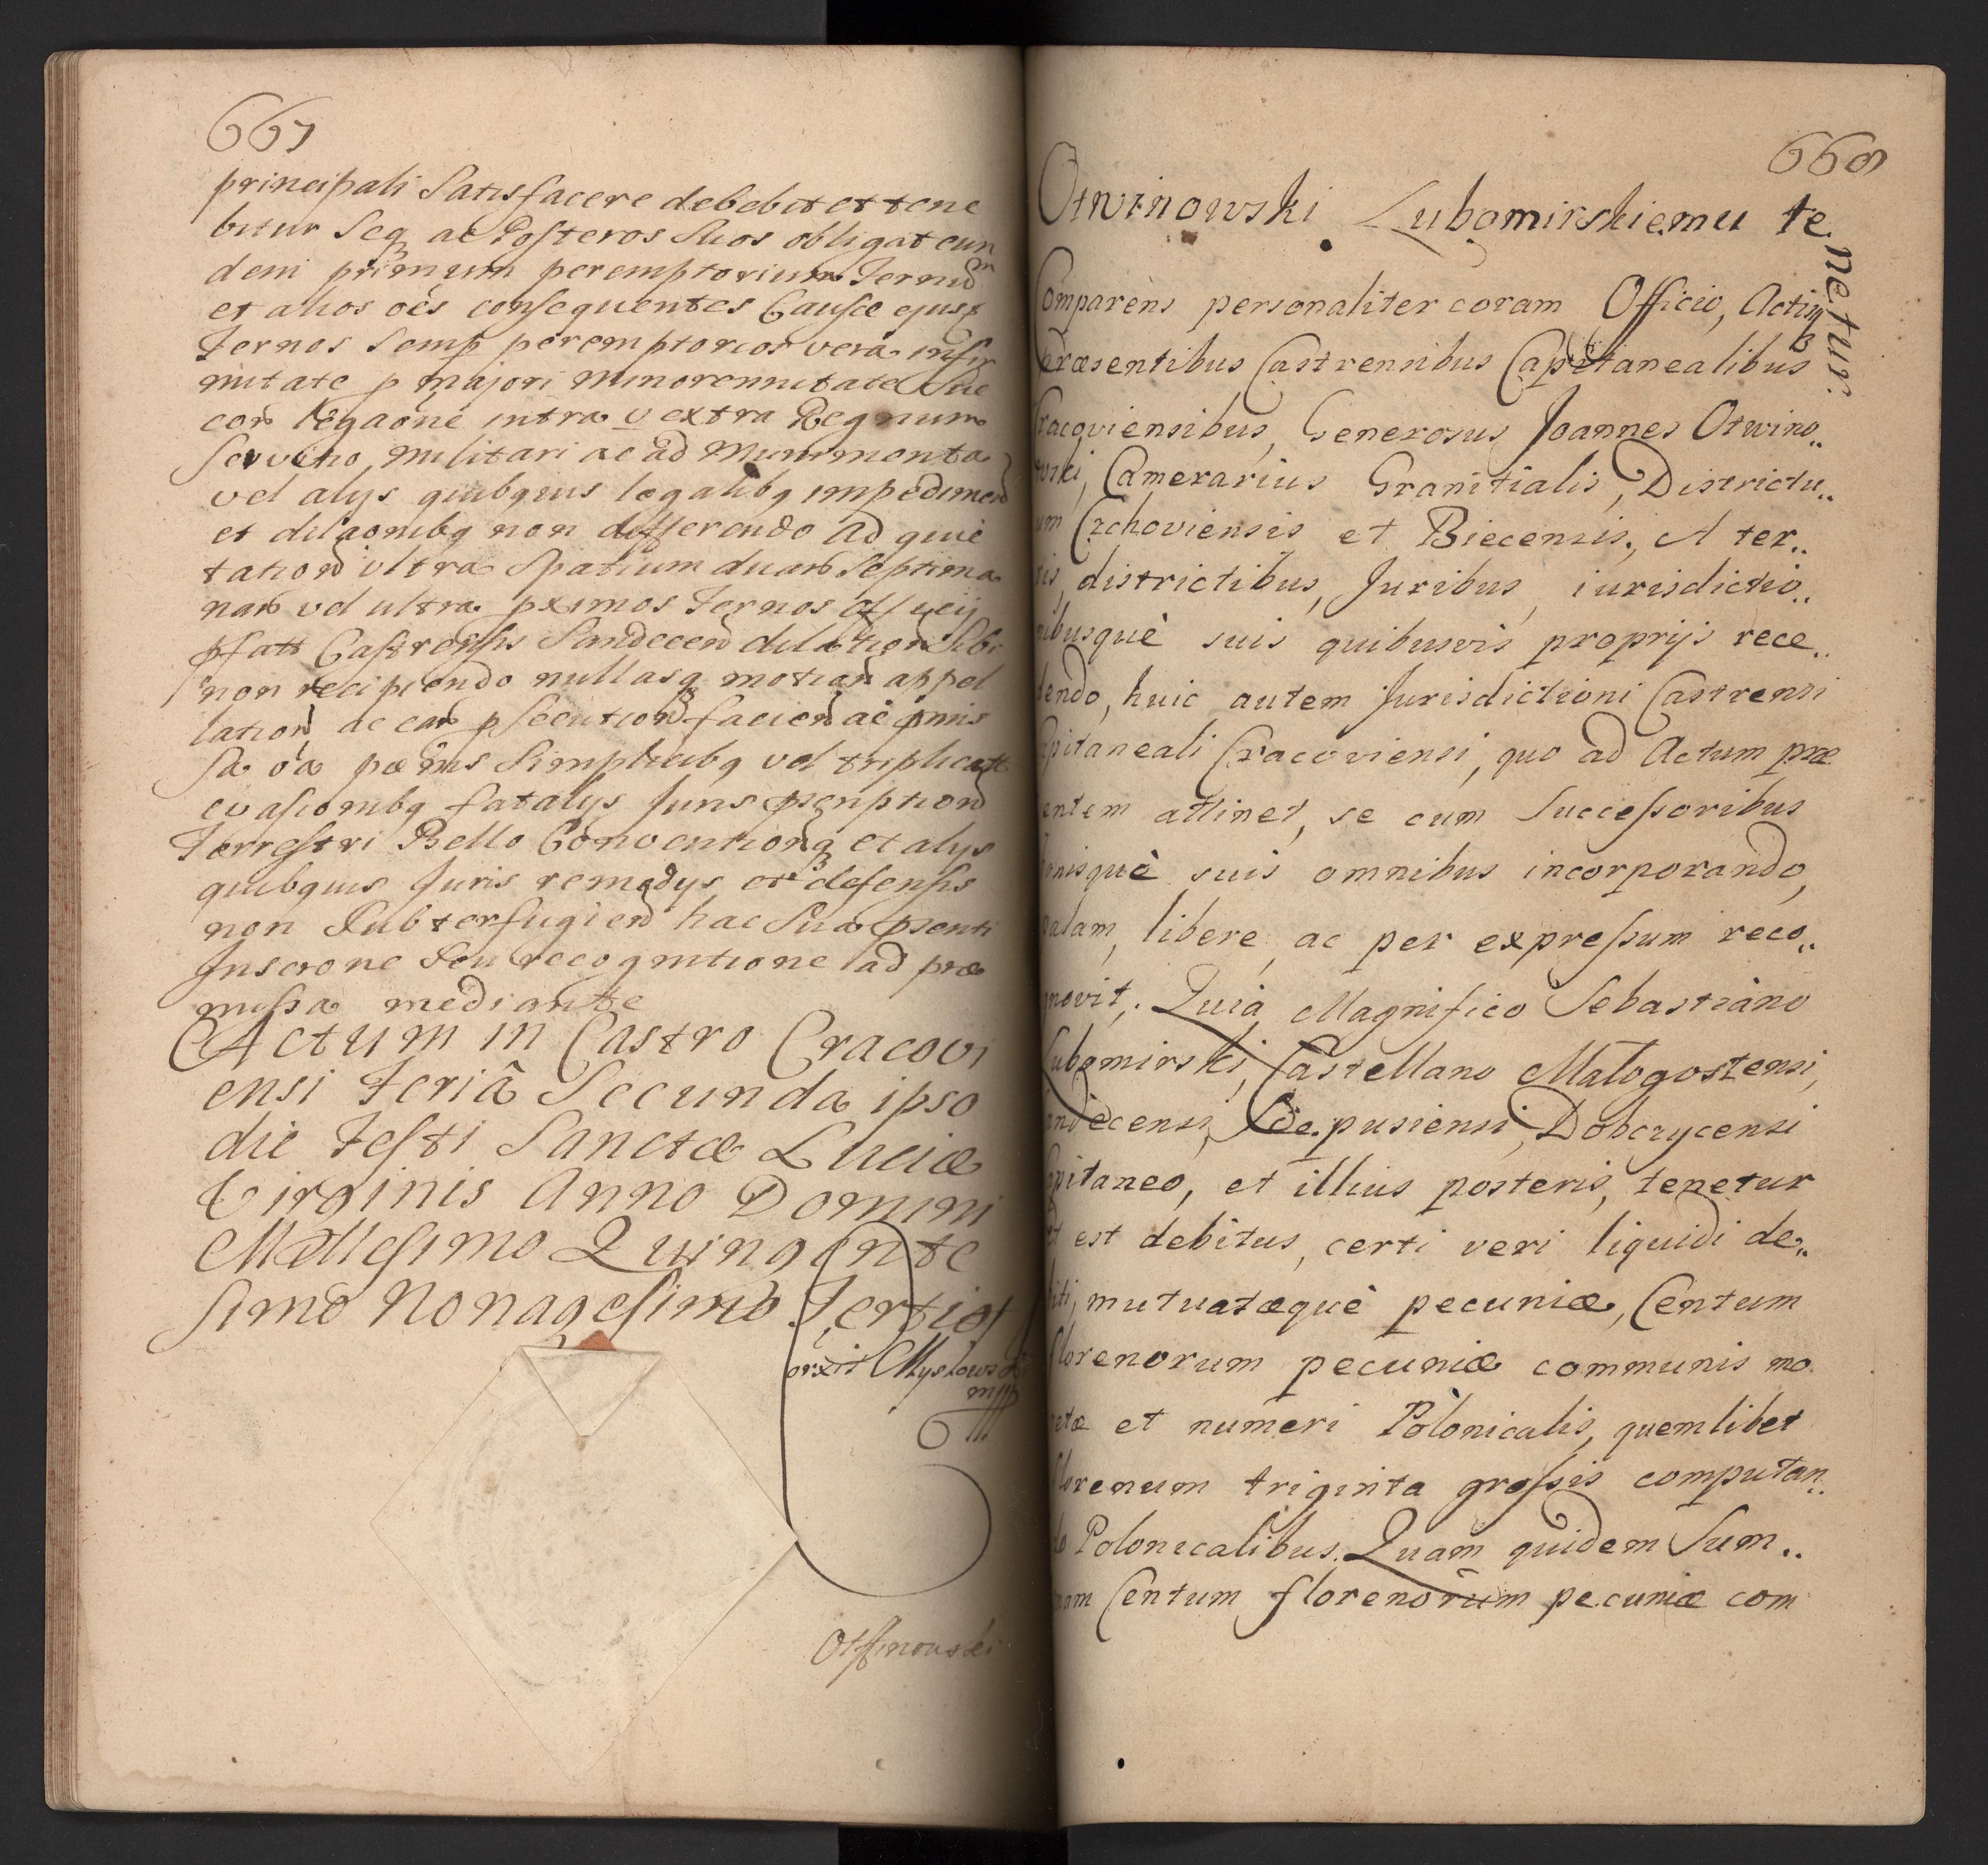 667
principali Satisfacere debebit et tene
bitur Seq ac Posteros Suos obligat eun
dem primum peremptorium Termin
et alios oēs consequentes Causæ ejusq
Termos Semp peremptorios vera infir
mitate p majori minorennitate Sue
cor legaōne intra v extra Regnum
Servitio militari ac ad Munimenta
vel alys quibqius legalibq impedimen
et dilaōnibq non differendo ad quie
tation ultra Spatium duar Septima
nar vel ultra pximos Termos Officij
pfati Castrensis Sandecen dilation Sibi
non recipiendo nullasq motion appel
lation ac ear psecution facien ac
pœnis Simplicibq vel triplicat
evasionibq fatalys Juris pscription
Terrestri Bello Conventionq et alys
quibquis Juris remedys et defensis
non Subterfugien hac Sua psenti
Inscrone Seu recognitione ad præ
missa mediante
Actum in Castro Cracovi
ensi Feriâ Secunda ipso
die Festi Sanctæ Luciæ
Virginis Anno Domini
Millesimo Quingente
simo Nonagesimo Tertio
Otffinouski
669
Otwinowski Lubomirskiemu te
netur.
Comparens personaliter coram Officio, Actisq
Præsentibus Castrensibus Capitanealibus
Cracoviensibus, Generosus Joannes Otwino..
wski, Camerarius Granitialis, Districtu..
um Czchoviensis et Biecensis, A ter..
ris, districtibus, Juribus, iurisdictio..
nibusquè suis quibusvis proprijs rece..
dendo, huic autem Jurisdictioni Castrensi
Capitaneali Cracoviensi, quo ad Actum præ
sentem attinet, se cum Successoribus
bonisquè suis omnibus incorporando,
palam, libere, ac per expressum reco..
gnovit. Quia Magnifico Sebastiano
Lubomirski, Castellano Malogostensi,
Sandecensi, Scepusiensi, Dobczycensi
Capitaneo, et illius posteris, tenetur
et est debitus, certi veri liquidi de..
biti, mutuatæquè pecuniæ, Centum
florenorum pecuniæ communis mo.
netæ et numeri Polonicalis, quemlibet
florenum triginta grossis computan..
do Polonicalibus. Quam quidem Sum..
mam Centum florenorum pecuniæ com